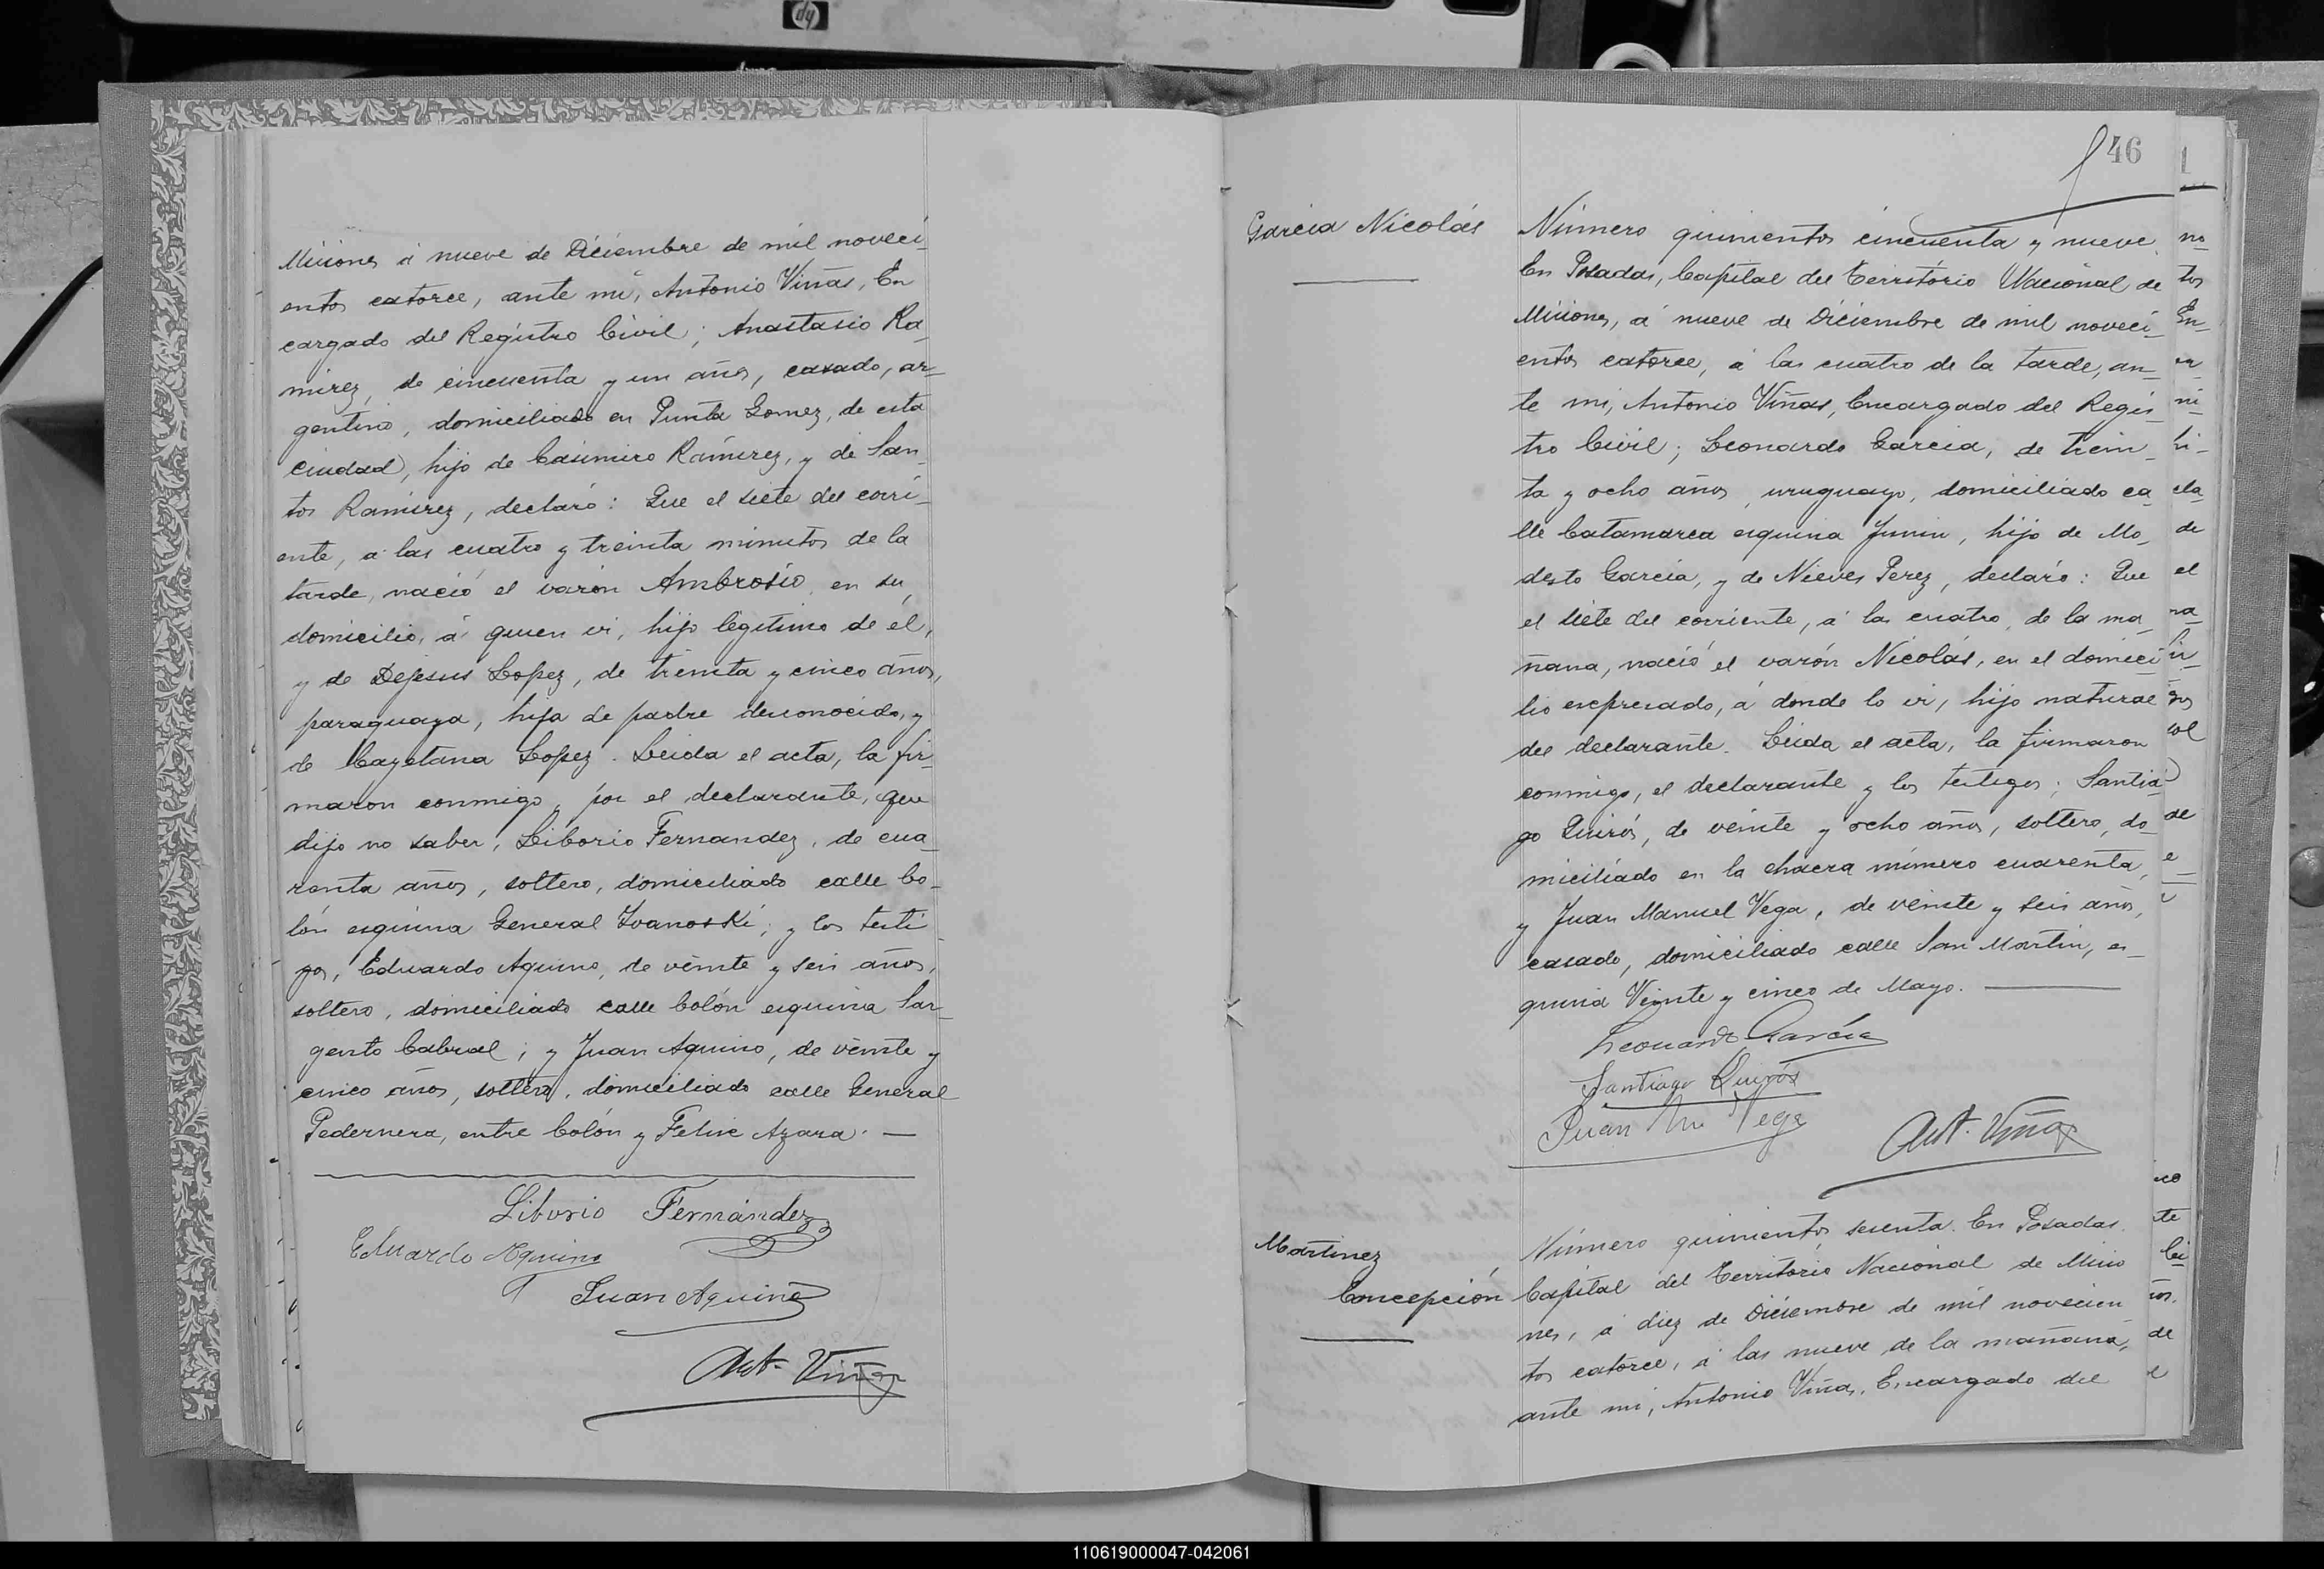 hp
Misiones á nueve de Diciembre de mil noveci_
entos catorce, ante mi, Antonio Viñas, En
cargado del Registro Civil; Anastasio Ra_
mirez, de cincuenta y un años, casado, ar_
gentino, domiciliado en Punta Gomez, de esta
ciudad, hijo de Casimiro Ramirez, y de San_
tos Ramirez, declaró: Que el siete del corri_
ente, á las cuatro y treinta minutos de la
tarde, nació el varón Ambrosio, en su
domicilio, á quien vi, hijo legitimo de él,
y de Dejesus Lopez, de treinta y cinco años,
paraguaya, hija de padre desconocido, y
de Cayetana Lopez. Leida el acta, la fir_
maron conmigo, por el declarante, que
dijo no saber, Liborio Fernandez, de cua_
renta años, soltero, domiciliado calle Co_
lón esquina General Ivanoski; y los testi_
gos, Eduardo Aquino, de veinte y seis años,
soltero, domiciliado calle Colón esquina Sar_
gento Cabral; y Juan Aquino, de veinte y
cinco años, soltero, domiciliado calle General
Pedernera, entre Colón y Felix Azara. —
Liborio Fernández
Eduardo Aquino
Juan Aquino
Ant. Viñas
46
Garcia Nicolás
Número quinientos cincuenta y nueve.
En Posadas, Capital del Territorio Nacional de
Misiones, á nueve de Diciembre de mil noveci_
entos catorce, á las cuatro de la tarde, an_
te mi, Antonio Viñas, Encargado del Regis_
tro Civil; Leonardo Garcia, de trein_
ta y ocho años, uruguayo, domiciliado ca_
lle Catamarca esquina Junin, hijo de Mo_
desto Garcia, y de Nieves Perez, declaró: Que
el siete del corriente, á las cuatro, de la ma_
ñana, nació el varón Nicolás, en el domici_
lio expresado, á donde lo vi, hijo natural
del declarante. Leida el acta, la firmaron
conmigo, el declarante y los testigos; Santia_
go Quirós, de veinte y ocho años, soltero, do_
miciliado en la chacra número cuarenta,
y Juan Manuel Vega, de veinte y seis años,
casado, domiciliado calle San Martin, es_
quina Veinte y cinco de Mayo. —
Leonardo García
Santiago Quirós
Juan M Vega
Ant. Viñas
Martinez
Concepción
Número quinientos sesenta. En Posadas,
Capital del Territorio Nacional de Misio
nes, á diez de Diciembre de mil novecien
tos catorce, á las nueve de la mañana,
ante mi, Antonio Viñas, Encargado del
110619000047-042061